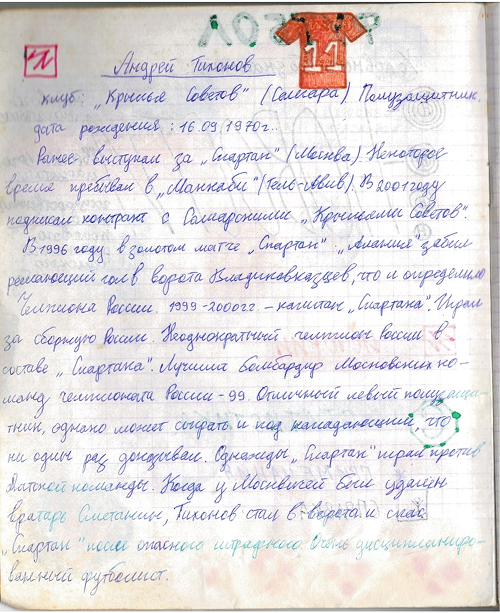 11
Андрей Тихонов
клуб: „Крылья Советов" (Самара) Полузащитник.
дата рождения: 16.09.1970г..
Ранее выступал за „Спартак" (Москва). Некоторое
время пребывал в „Маккаби" (Тель-Авив). В 2001 году
подписал контракт с Самарскими „Крыльями Советов".
В 1996 году в золотом матче „Спартак" - „Алания" забил
решающий гол в ворота Владикавказцев, что и определило
Чемпиона России. 1999-2000гг. – капитан „Спартака". Играл
за сборную России. Неоднократный чемпион России в
составе „Спартака". Лучший бомбардир Московских ко-
манд чемпионата России - 99. Отличный левый полузащи-
тник, однако может сыграть и под нападающим, что
ни один раз доказывал. Однажды, „Спартак" играл против
Датской команды. Когда у Москвичей был удалён
вратарь Сметанин, Тихонов стал в ворота и спас
„Спартак" после опасного штрафного. Очень дисциплиниро-
ванный футболист.